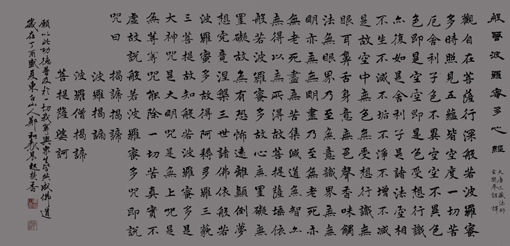 般若波羅蜜多心經
大唐三藏法師
玄奘奉詔譯
觀自在菩薩行深般若波羅蜜
多時照見五蘊皆空度一切苦
厄舍利子色不異空空不異色
色即是空空即是色受想行識
亦復如是舍利子是諸法空相
不生不滅不垢不淨不增不減
是故空中無色無受想行識無
眼耳鼻舌身意無色聲香味觸
法無眼界乃至無意識界無無
明亦無無明盡乃至無老死亦
無老死盡無苦集滅道無智亦
無得以無所得故菩提薩埵依
般若波羅蜜多故心無罣礙無
罣礙故無有恐怖遠離顛倒夢
想究竟涅槃三世諸佛依般若
波羅蜜多故得阿耨多羅三藐
三菩提故知般若波羅蜜多是
大神咒是大明咒是無上咒是
無等等咒能除一切苦真實不
虛故說般若波羅蜜多咒即說
咒曰 揭諦揭諦
波羅揭諦
波羅僧揭諦
菩提薩婆訶
願以此功德普及於一切我等與眾生皆共成佛道
歲在丁酉盛夏東白山人